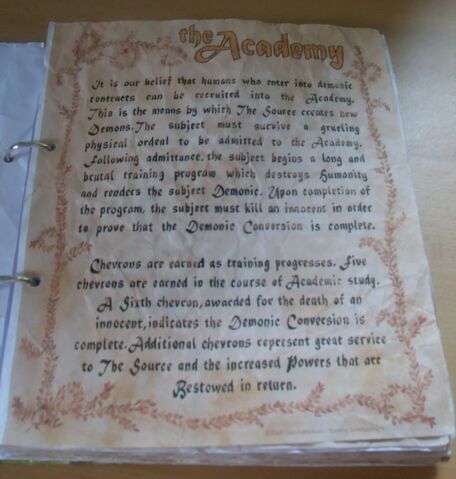 the Academy
It is our belief that humans who enter into demonic
contracts can be recruited into the Academy.
This is the means by which The Source creates new
Demons.The subject must survive a grueling
physical ordeal to be admitted to the Academy.
Following admittance, the subject begins a long and
brutal training program which destroys Humanity
and renders the subject Demonic. Upon completion of
the program, the subject must kill an innocent in order
to prove that the Demonic Conversion is complete.
Chevrons are earned as training progresses. Five
chevrons are earned in the course of Academic study.
A Sixth chevron, awarded for the death of an
innocent, indicates the Demonic Conversion is
complete. Additional chevrons represent great service
to The Source and the increased Powers that are
Bestowed in return.